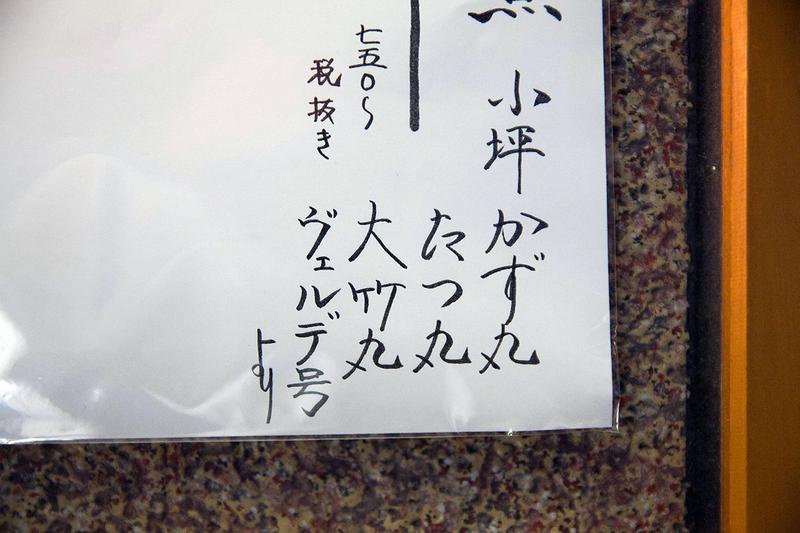 小坪 かず丸
たつ丸
大竹丸
ヴェルデ号
より
七五〇〜
税抜き